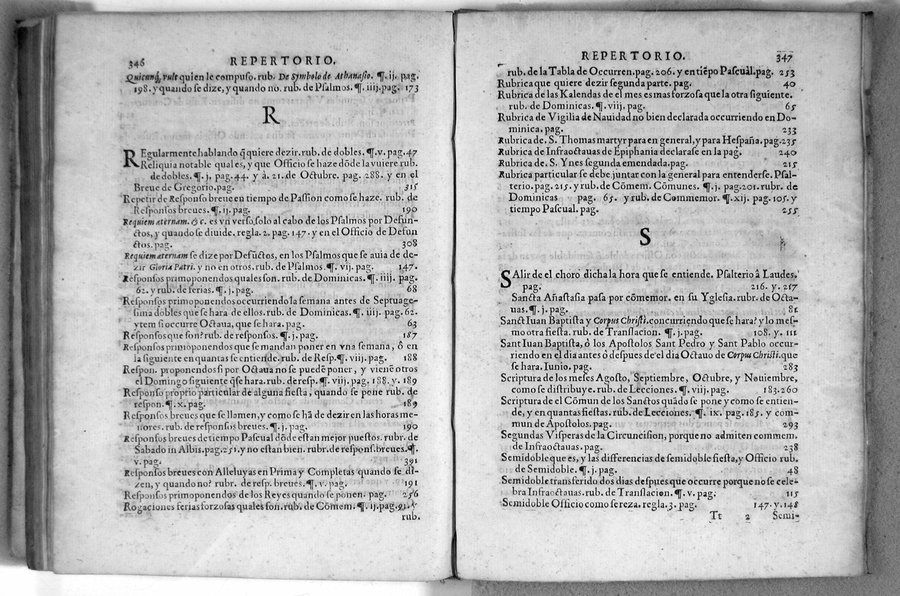 346 REPERTORIO.
Quicunq̃, vult quien le compuso. rub. De Symbolo de Athanasio. ¶. ij. pag.
198. y quando se dize, y quando no. rub. de Psalmos. ¶. iij. pag. 173
R
Regularmente hablando q̃ quiere dezir. rub. de dobles. ¶. v. pag. 47
Reliquia notable qual es, y que Officio se haze dõde la vuiere. rub.
de dobles. ¶. j. pag. 44. y à. 21. de Octubre. pag. 288. y en el
Breue de Gregorio. pag. 315
Repetir de Responso breue en tiempo de Passion como se haze. rub. de
Responsos breues. ¶. ij. pag. 190
Requiem æternam. &c. es vn verso, solo al cabo de los Psalmos por Defun-
ctos, y quando se diuide. regla. 2. pag. 147. y en el Officio de Defun
ctos. pag. 308
Requiem æternam se dize por Defũctos, en los Psalmos que se auia de de-
zir Gloria Patri. y no en otros. rub. de Psalmos. ¶. vij. pag. 147.
Responsos primoponendos quales son. rub. de Dominicas. ¶. iiij. pag.
62. y rub. de ferias. ¶. j. pag. 68
Responsos primoponendos occurriendo la semana antes de Septuage-
sima dobles que se hara de ellos. rub. de Dominicas. ¶. iij. pag. 62.
y tem si occurre Octaua, que se hara. pag. 63
Responsos que son? rub. de responsos. ¶. j. pag. 187
Responsos primoponendos que se mandan poner en vna semana, ô en
la siguiente en quantas se entiende. rub. de Resp. ¶. viij. pag. 188
Respon. proponendos si por Octaua no se puedẽ poner, y vienẽ otros
el Domingo siguiente q̃ se hara. rub. de resp. ¶. viij. pag. 188. y. 189
Responso proprio particular de alguna fiesta, quando se pone rub. de
respon. ¶. x. pag. 189
Responsos breues que se llamen, y como se hã de dezir en las horas me-
nores. rub. de responsos breues. ¶. j. pag. 190
Responsos breues de tiempo Pascual dõde estan mejor puestos. rubr. de
Sabado in Albis. pag. 251. y no estan bien. rubr. de respons. breues. ¶.
v. pag. 391
Responsos breues con Alleluyas en Prima y Completas quando se di-
zen, y quando no? rubr. de resp. breues. ¶. v. pag. 191
Responsos primoponendos de los Reyes quando se ponen. pag. 256
Rogaciones ferias forzosas quales son. rub. de Cõmem. ¶. ij. pag. 93.
rub.
REPERTORIO. 347
rub. de la Tabla de Occurren. pag. 206. y en tiẽpo Pascual. pag. 253
Rubrica que quiere dezir segunda parte. pag. 40
Rubrica de las Kalendas de el mes es mas forzosa que la otra siguiente.
rub. de Dominicas. ¶. viij. pag. 65
Rubrica de Vigilia de Nauidad no bien declarada occurriendo en Do-
minica. pag. 233
Rubrica de S. Thomas martyr para en general, y para Hespaña. pag. 235
Rubrica de Infraoctauas de Epiphania declarase en la pag. 240
Rubrica de S. Ynes segunda emendada. pag. 215
Rubrica particular se debe juntar con la general para entenderse. Psal-
terio. pag. 215. y rub. de Cõmem. Cõmunes. ¶. j. pag. 201. rubr. de
Dominicas pag. 65. y rub. de Commemor. ¶. xij. pag. 105. y
tiempo Pascual. pag. 255
S
Salir de el choro dicha la hora que se entiende. Psalterio â Laudes.
pag. 216. y. 217
Sancta Añastasia pasa por cõmemor. en su Yglesia. rubr. de Octa-
uas. ¶. j. pag. 81
Sanct Iuan Baptista y Corpus Christi. concurriendo que se hara? y lo mes-
mo otra fiesta. rub. de Translacion. ¶. j. pag. 108. y. 111
Sant Iuan Baptista, ô los Apostolos Sant Pedro y Sant Pablo occur-
riendo en el dia antes ô despues de el dia Octauo de Corpus Christi. que
se hara. Iunio. pag. 283
Scriptura de los meses Agosto, Septiembre, Octubre, y Nouiembre,
como se distribuye. rub. de Lecciones. ¶. viij. pag. 183. 260
Scriptura de el Cõmun de los Sanctos quãdo se pone y como se entien-
de, y en quantas fiestas. rub. de Lecciones. ¶. ix. pag. 185. y com-
mun de Apostolos. pag. 293
Segundas Visperas de la Circuncision, porque no admiten commem.
de Infraoctauas. pag. 238
Semidoble que es, y las differencias de semidoble fiesta, y Officio rub.
de Semidoble. ¶. j. pag. 48
Semidoble transferido dos dias despues que occurre porque no se cele-
bra Infraoctauas. rub. de Translacion. ¶. v. pag. 115
Semidoble Officio como se reza. regla. 3. pag. 147. y. 148
Tt 2 Semi-